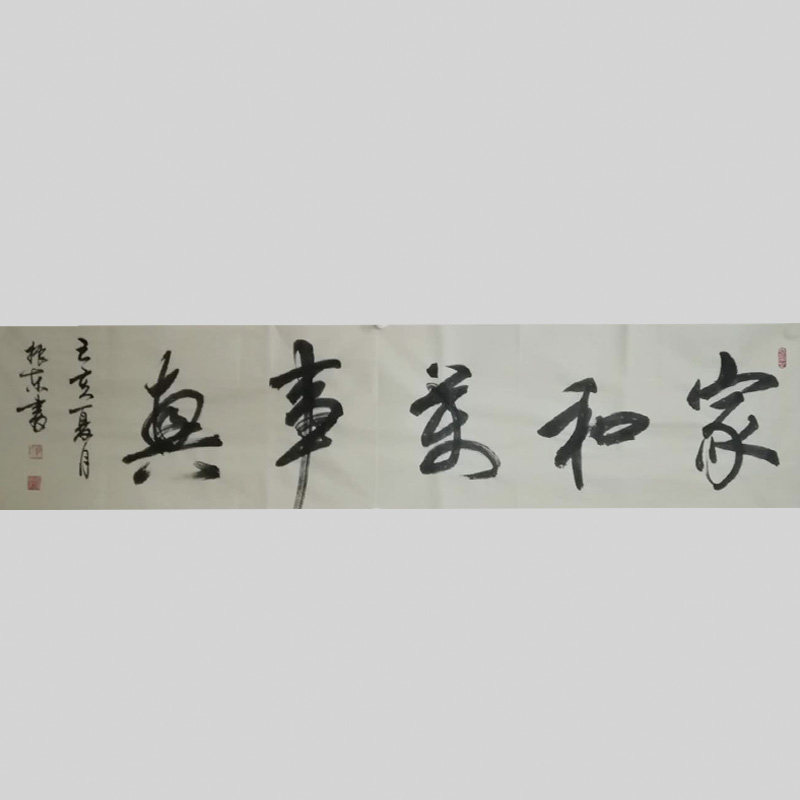 家和萬事興
己亥夏月
振東書